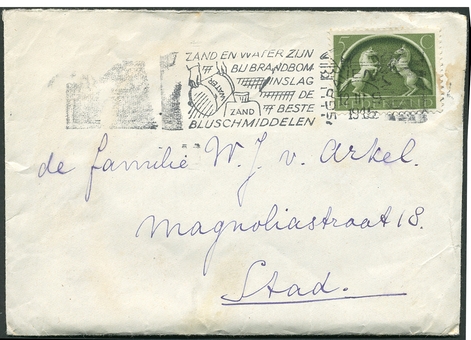 ZAND EN WATER ZIJN
BIJ BRANDBOM
INSLAG
WATER
DE
ZAND
BESTE
BLUSCHMIDDELEN
5 C
de familie W. J. v. Arkel.
Magnoliastraat 18.
Stad.